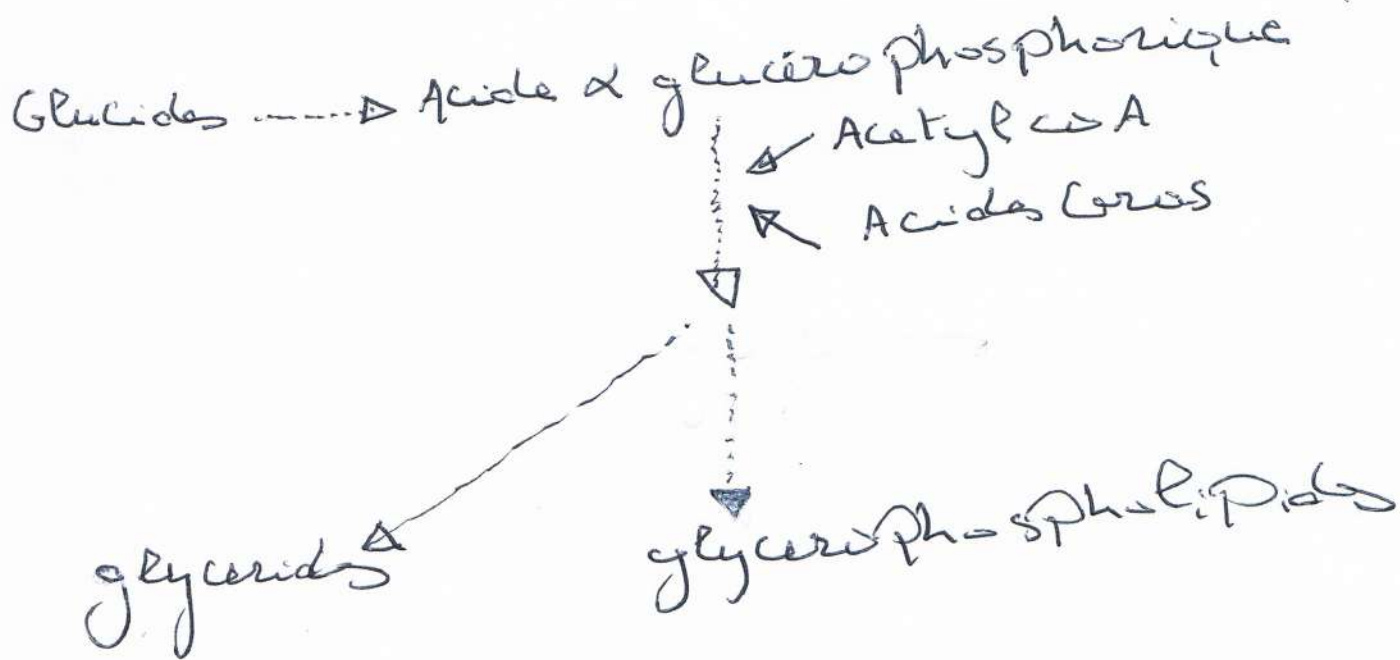 Glucides → Acide α glucérophosphorique
Acetyl co A
Acides Gras
glycerides
glycerophospholipides